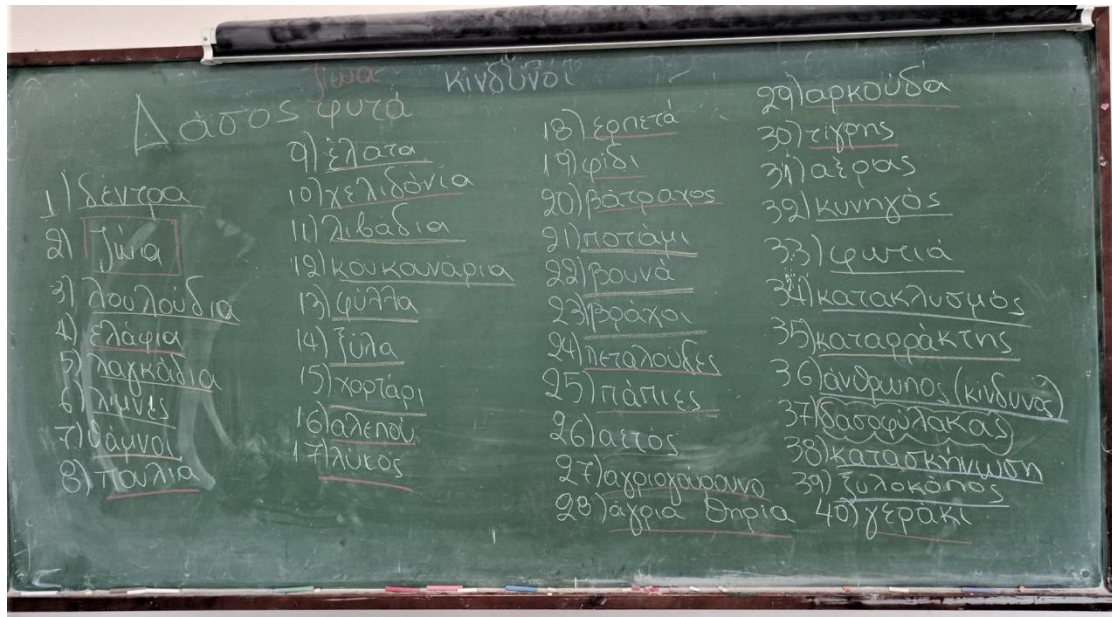 ζωα
κίνδυνοι
Δάσος φυτά
1) δέντρα
2) ζώα
3) λουλούδια
4) ελάφια
5) λαγκάδια
6) λίμνες
7) θάμνοι
8) πουλιά
9) έλατα
10) χελιδόνια
11) λιβάδια
12) κουκουνάρια
13) φύλλα
14) ξύλα
15) χορτάρι
16) αλεπού
17) λύκος
18) ερπετά
19) φίδι
20) βάτραχος
21) ποτάμι
22) βουνά
23) βράχοι
24) πεταλούδες
25) πάπιες
26) αετός
27) αγριογούρουνο
28) άγρια θηρία
29) αρκούδα
30) τίγρης
31) αέρας
32) κυνηγός
33) φωτιά
34) κατακλυσμός
35) καταρράκτης
36) άνθρωπος (κίνδυνος)
37) δασοφύλακας
38) κατασκήνωση
39) ξυλοκόπος
40) γεράκι